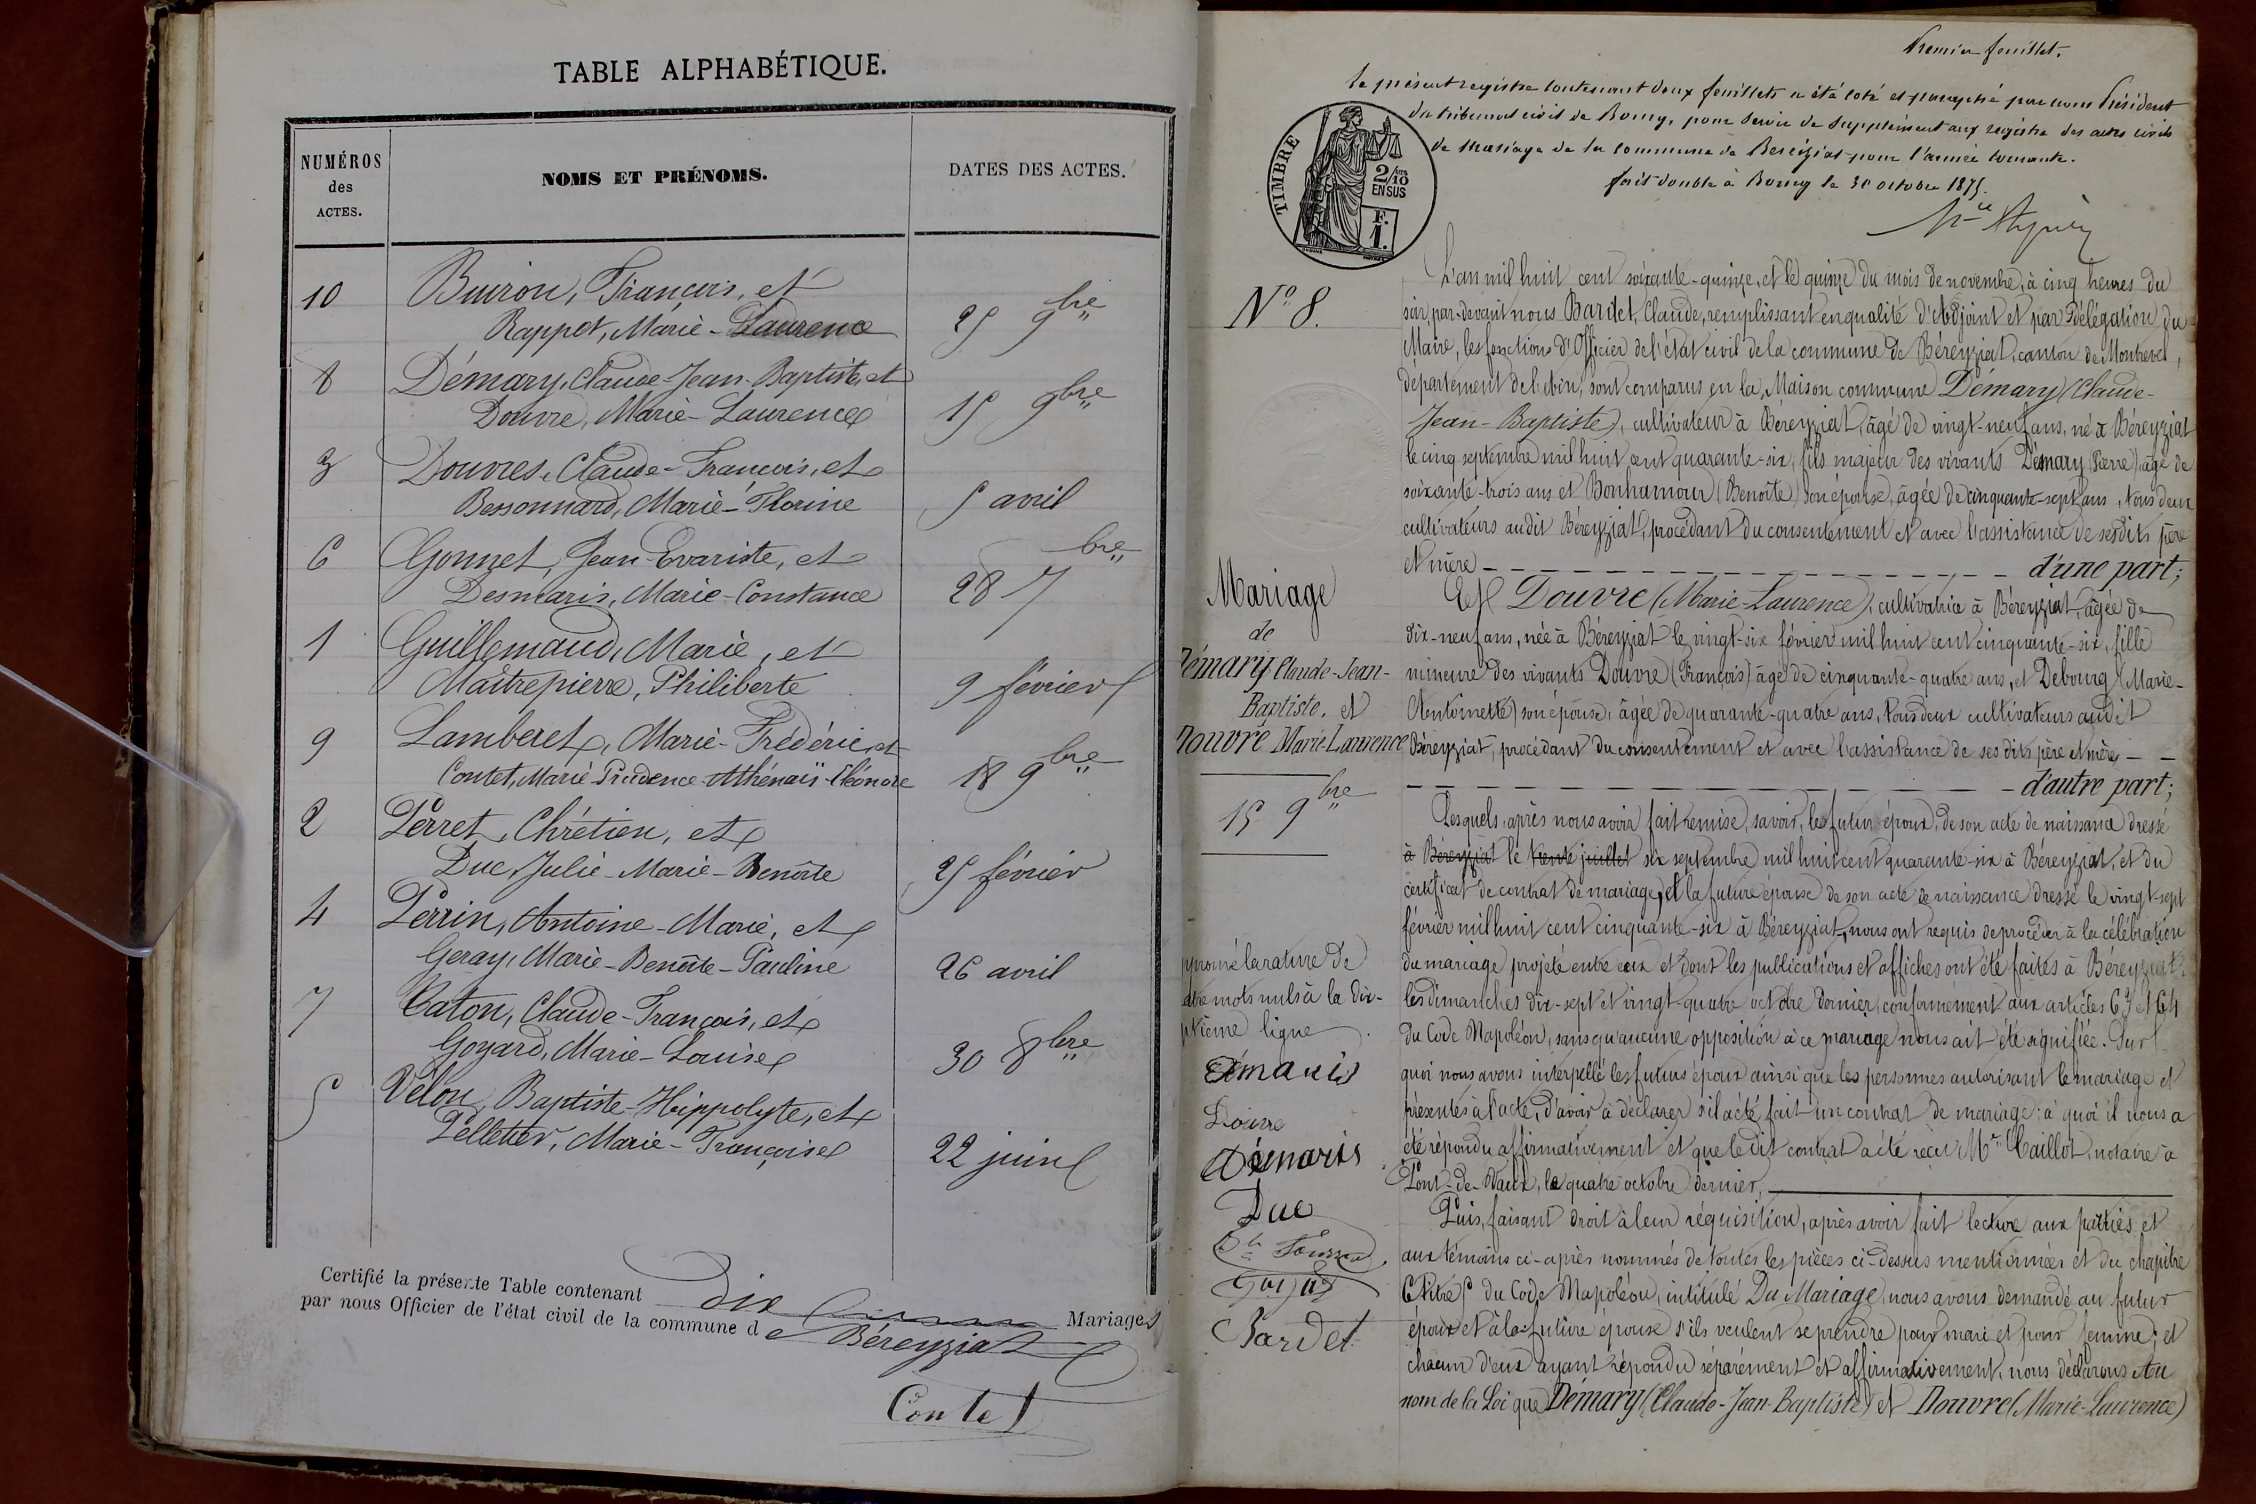 TABLE ALPHABÉTIQUE.
NUMÉROS
des
ACTES.
NOMS ET PRÉNOMS.
DATES DES ACTES.
10 Buiron, François, et
Rappet, Marie-Laurence 25 9bre
8 Démary, Claude-Jean-Baptiste, et
Douvre, Marie-Laurence 15 9bre
3 Douvres, Claude-François, et
Bessonnard, Marie-Florine 5 avril
6 Gonnet, Jean-Evariste, et
Desmaris, Marie-Constance 28 7bre
1 Guillemaud, Marie, et
Maîtrepierre, Philiberte 9 février
9 Lamberet, Marie-Frédéric, et
Contet, Marie-Prudence-Athénaïs-Eléonore 18 9bre
2 Perret, Chrétien, et
Duc, Julie-Marie-Benoîte 25 février
4 Perrin, Antoine-Marie, et
Geray, Marie-Benoîte-Pauline 26 avril
7 Caton, Claude-François, et
Goyard, Marie-Louise 30 8bre
5 Velon, Baptiste-Hippolyte, et
Pelletier, Marie-Françoise 22 juin
Certifié la présente Table contenant dix Mariages
par nous Officier de l'état civil de la commune de Béreyziat
Contet
Premier feuillet.
Le présent registre contenant deux feuillets a été coté et paraphé par nous Président
du tribunal civil de Bourg, pour servir de supplément aux registre des actes civils
de mariage de la commune de Bereiziat pour l'année courante.
fait double à Bourg le 30 octobre 1875.
TIMBRE
2/10
EN SUS
F.
1.
N° 8.
L'an mil huit cent soixante-quinze, et le quinze du mois de novembre, à cinq heures du
soir, par-devant nous Bardet, Claude, remplissant en qualité d'Adjoint et par délégation du
Maire, les fonctions d'Officier de l'état civil de la commune de Béreyziat, canton de Montrevel,
département de l'Ain, sont comparus en la Maison commune Démary (Claude-
Jean-Baptiste), cultivateur à Béreyziat, âgé de vingt-neuf ans, né à Béreyziat
le cinq septembre mil huit cent quarante-six, fils majeur des vivants Démary (Pierre) âgé de
soixante-trois ans et Bonhamour (Benoîte) son épouse, âgée de cinquante-sept ans, tous deux
cultivateurs audit Béreyziat, procédant du consentement et avec l'assistance de sesdits père
et mère d'une part;
Mariage
de
Démary Claude-Jean-
Baptiste, et
Douvre Marie-Laurence
15 9bre
Et Douvre (Marie-Laurence), cultivatrice à Béreyziat, âgée de
dix-neuf ans, née à Béreyziat le vingt-six février mil huit cent cinquante-six, fille
mineure des vivants Douvre (François) âgé de cinquante-quatre ans, et Debourg (Marie-
Antoinette) son épouse, âgée de quarante-quatre ans, tous deux cultivateurs audit
Béreyziat, procédant du consentement et avec l'assistance de ses dits père et mère
d'autre part;
Lesquels, après nous avoir fait remise, savoir, le futur époux, de son acte de naissance dressé
à Béreyziat le trente juillet six septembre mil huit cent quarante-six à Béreyziat, et du
certificat de contrat de mariage, et la future épouse de son acte de naissance dressé le vingt-sept
février mil huit cent cinquante-six à Béreyziat, nous ont requis de procéder à la célébration
du mariage projeté entre eux et dont les publications et affiches ont été faites à Béreyziat
les dimanches dix-sept et vingt-quatre octobre dernier, conformément aux articles 63 et 64
du Code Napoléon, sans qu'aucune opposition à ce mariage nous ait été signifiée. Sur
quoi nous avons interpellé les futurs époux ainsi que les personnes autorisant le mariage et
présentes à l'acte, d'avoir à déclarer s'il a été fait un contrat de mariage; à quoi il nous a
été répondu affirmativement et que ledit contrat a été reçu Me Caillot, notaire à
Pont-de-Vaux, le quatre octobre dernier,
Puis, faisant droit à leur réquisition, après avoir fait lecture aux parties et
aux témoins ci-après nommés de toutes les pièces ci-dessus mentionnées et du chapitre
6 titre 5 du Code Napoléon, intitulé Du Mariage, nous avons demandé au futur
époux et à la future épouse s'ils veulent se prendre pour mari et pour femme; et
chacun d'eux ayant répondu séparément et affirmativement, nous déclarons Au
nom de la Loi que Démary (Claude-Jean-Baptiste) et Douvre (Marie-Laurence)
la rature de
mots nuls à la dix-
ligne
Démaris
Douvre
Démaris
Duc
Goyard
Bardet